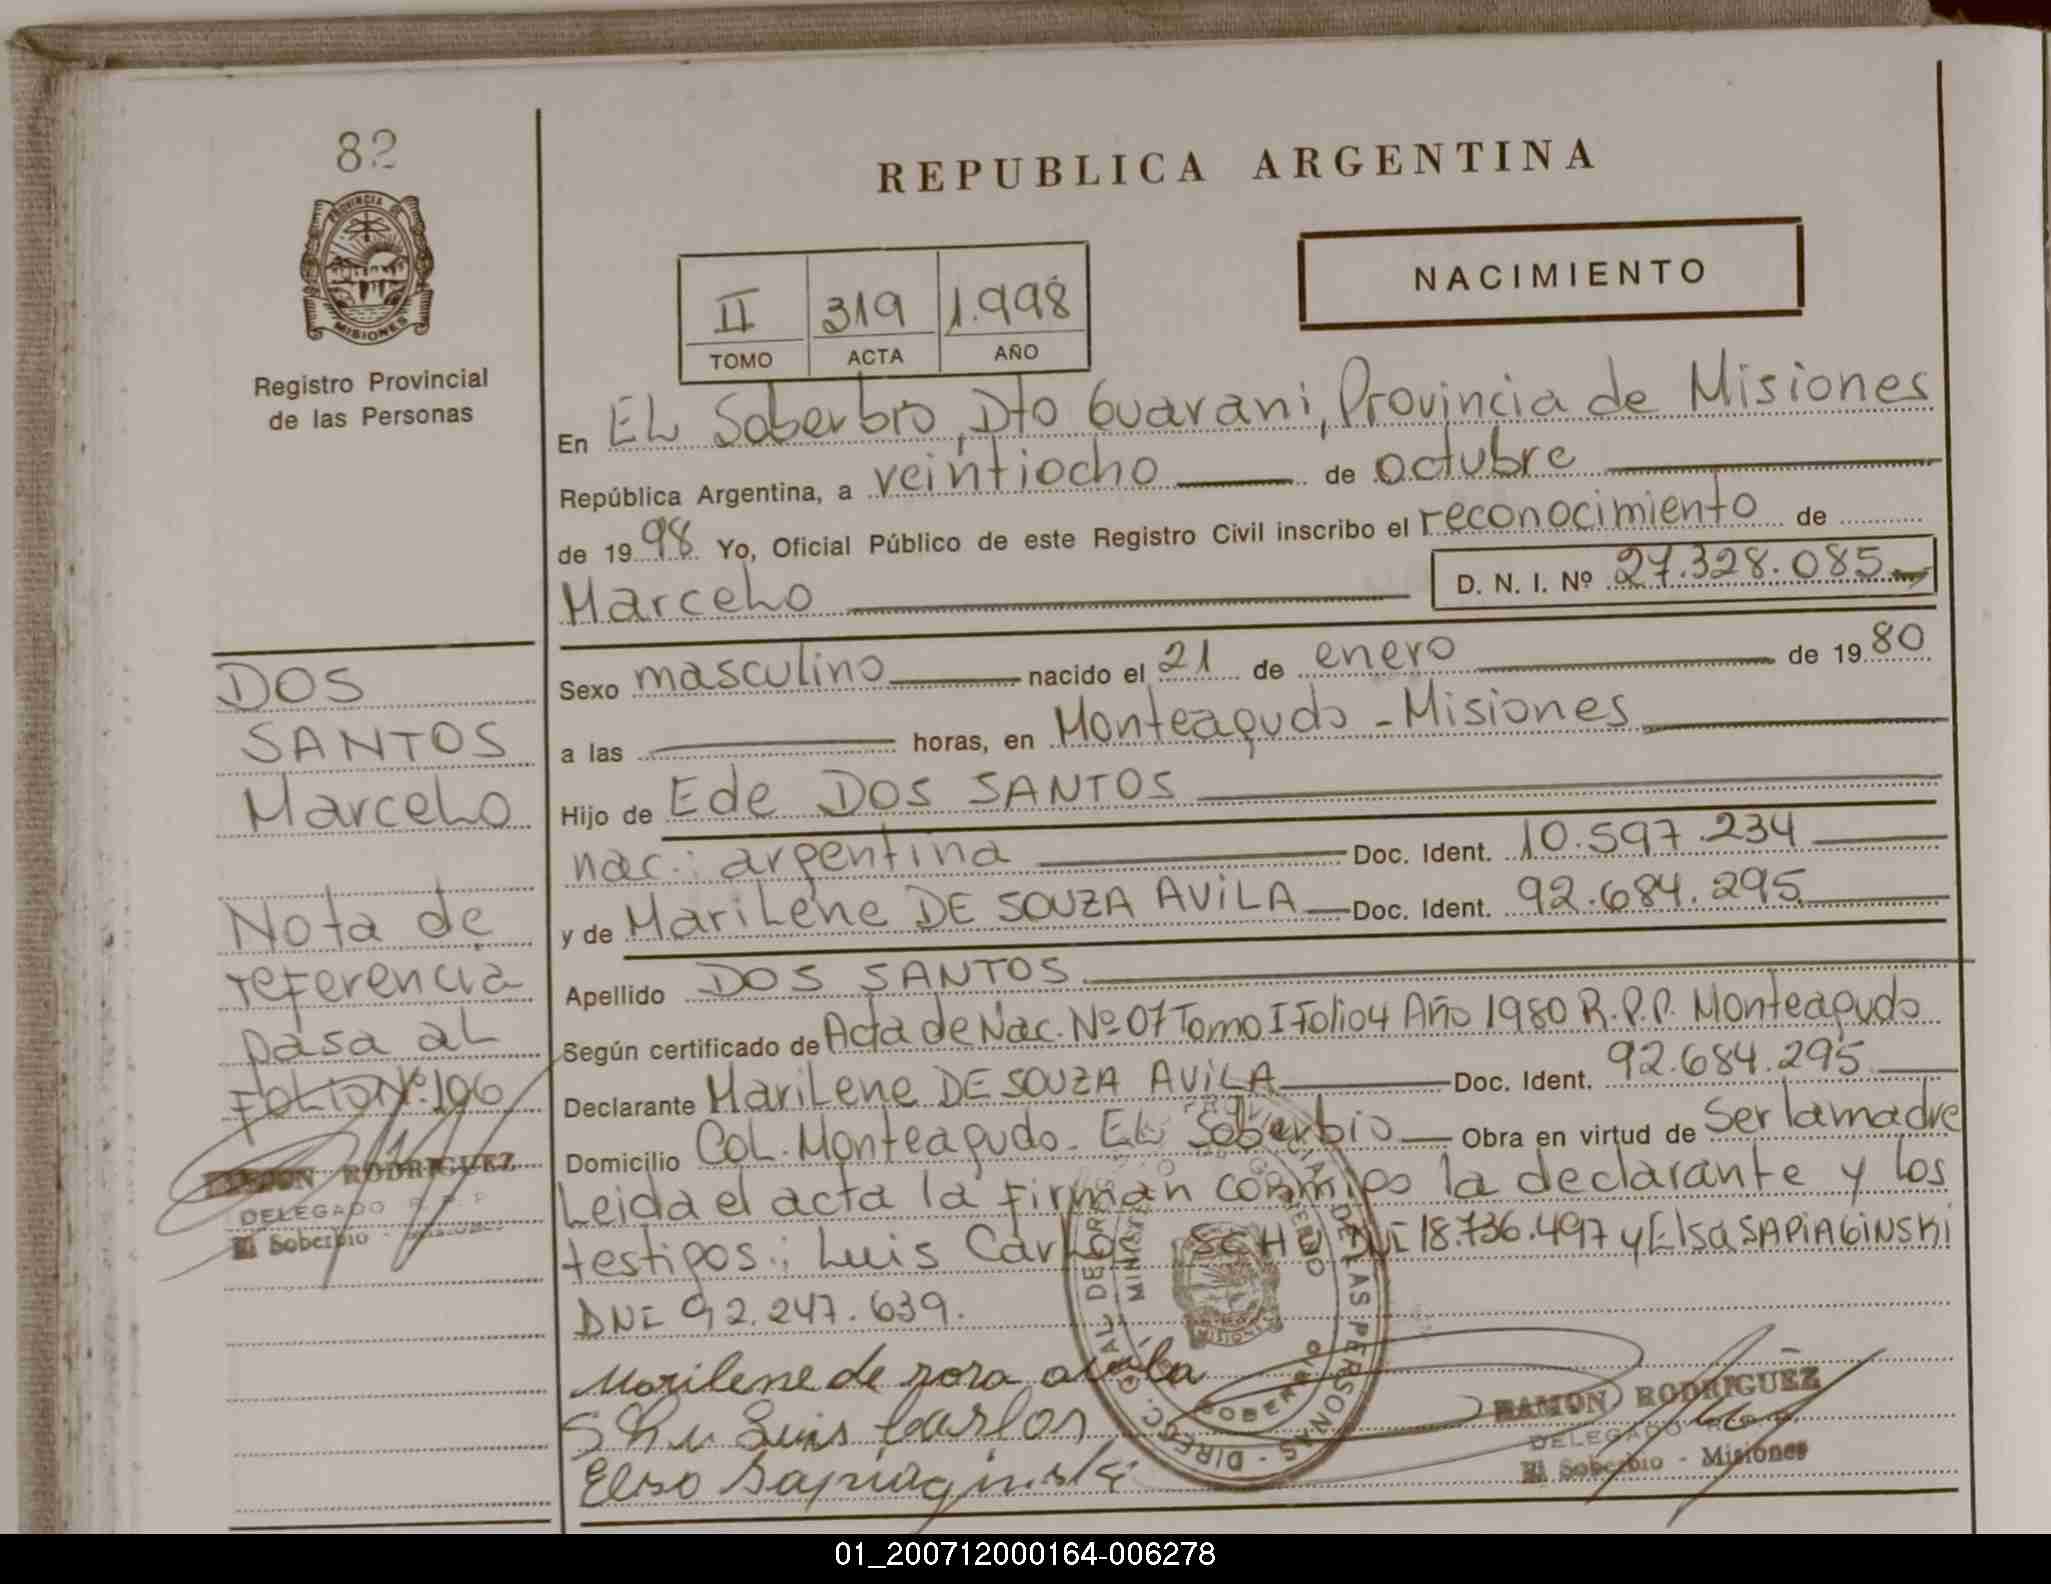 82
PROVINCIA DE
MISIONES
Registro Provincial
de las Personas
REPUBLICA ARGENTINA
NACIMIENTO
II 319 1.998
TOMO ACTA AÑO
En EL Soberbio, Dto Guarani, Provincia de Misiones
República Argentina, a veintiocho de octubre
de 1998 Yo, Oficial Público de este Registro Civil inscribo el reconocimiento de
Marcelo D. N. I. Nº 27.328.085
Sexo masculino nacido el 21 de enero de 1980
a las horas, en Monteagudo - Misiones
Hijo de Ede DOS SANTOS
nac.: argentina Doc. Ident. 10.597.234
y de Marilene DE SOUZA AVILA Doc. Ident. 92.684.295
Apellido DOS SANTOS
Según certificado de Acta de Nac. Nº 07 Tomo I Folio 4 Año 1980 R.P.P. Monteagudo
Declarante Marilene DE SOUZA AVILA Doc. Ident. 92.684.295
Domicilio Col. Monteagudo - EL Soberbio Obra en virtud de Ser la madre
Leida el acta la firman conmigo la declarante y los
testigos: Luis Carlos SCHU DNI 18.736.497 y Elsa SAPIAGINSKI
DNI 92.247.639.
Marilene de
Shu Luis Carlos
Elsa Sapiaginski
DIREC. GRAL DE LAS PERSONAS
SOBERBIO
RAMON RODRIGUEZ
DELEGADO R.P.P.
El Soberbio - Misiones
DOS
SANTOS
Marcelo
Nota de
referencia
pasa al
FOLIO Nº 106
RAMON RODRIGUEZ
DELEGADO R.P.P.
El Soberbio - Misiones
01_200712000164-006278